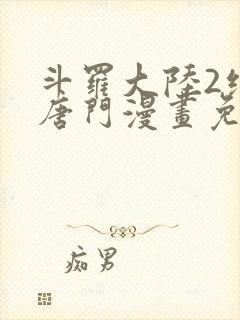 斗羅大陸2
唐門漫畫免
痴男